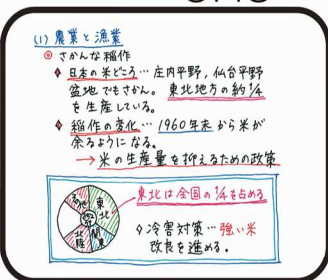 (1) 農業と漁業
◎ さかんな稲作
◆ 日本の米どころ… 庄内平野, 仙台平野
盆地でもさかん。 東北地方の約1/4
を生産している。
◆ 稲作の変化… 1960年末から米が
余るようになる。
→ 米の生産量を抑えるための政策
東北
関東
北陸
その他
東北は全国の1/4を占める
◇冷害対策…強い米
改良を進める。